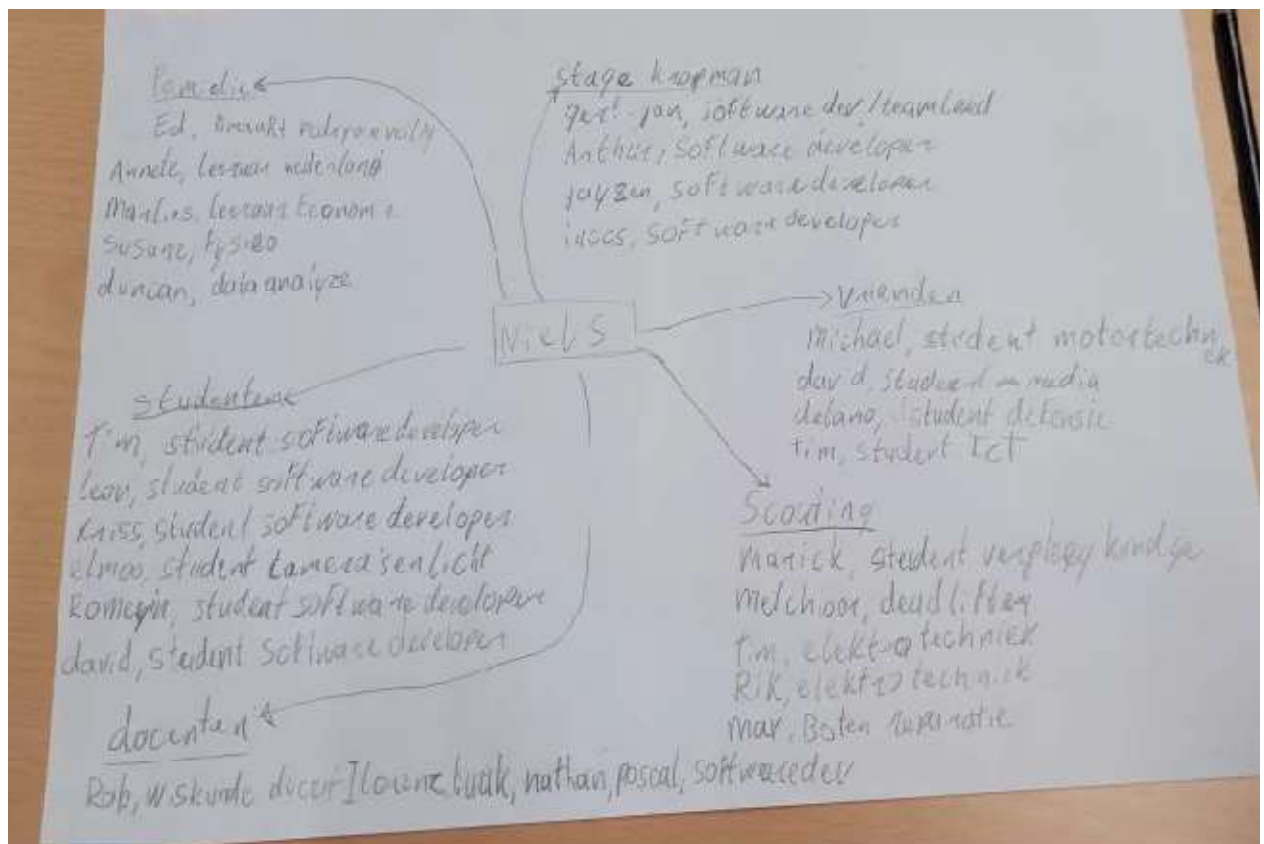 familie
Ed,
Annete, leeraar nederlands
Marlies, leeraar Economi
Susane, fysico
duncan, data analyze
stage kropman
gert-jan, software dev/teamlead
Arthur, software developer
jayzen, software developer
software developer
Niels
vrienden
michael, student motortechniek
david, student media
delano, student defensie
tim, student ICT
studenten
Tim, student software developer
leov, student software developer
kriss, student software developer
elmoo, student camera's en licht
Romeyn, student software developer
david, student software developer
Scouting
Marick, student verpleegkundige
Melchoor, deadliften
tim, elektrotechniek
Rik, elektrotechniek
Mar, Boten reparatie
docenten
Rob, wiskunde docent nathan, pascal, softwaredev